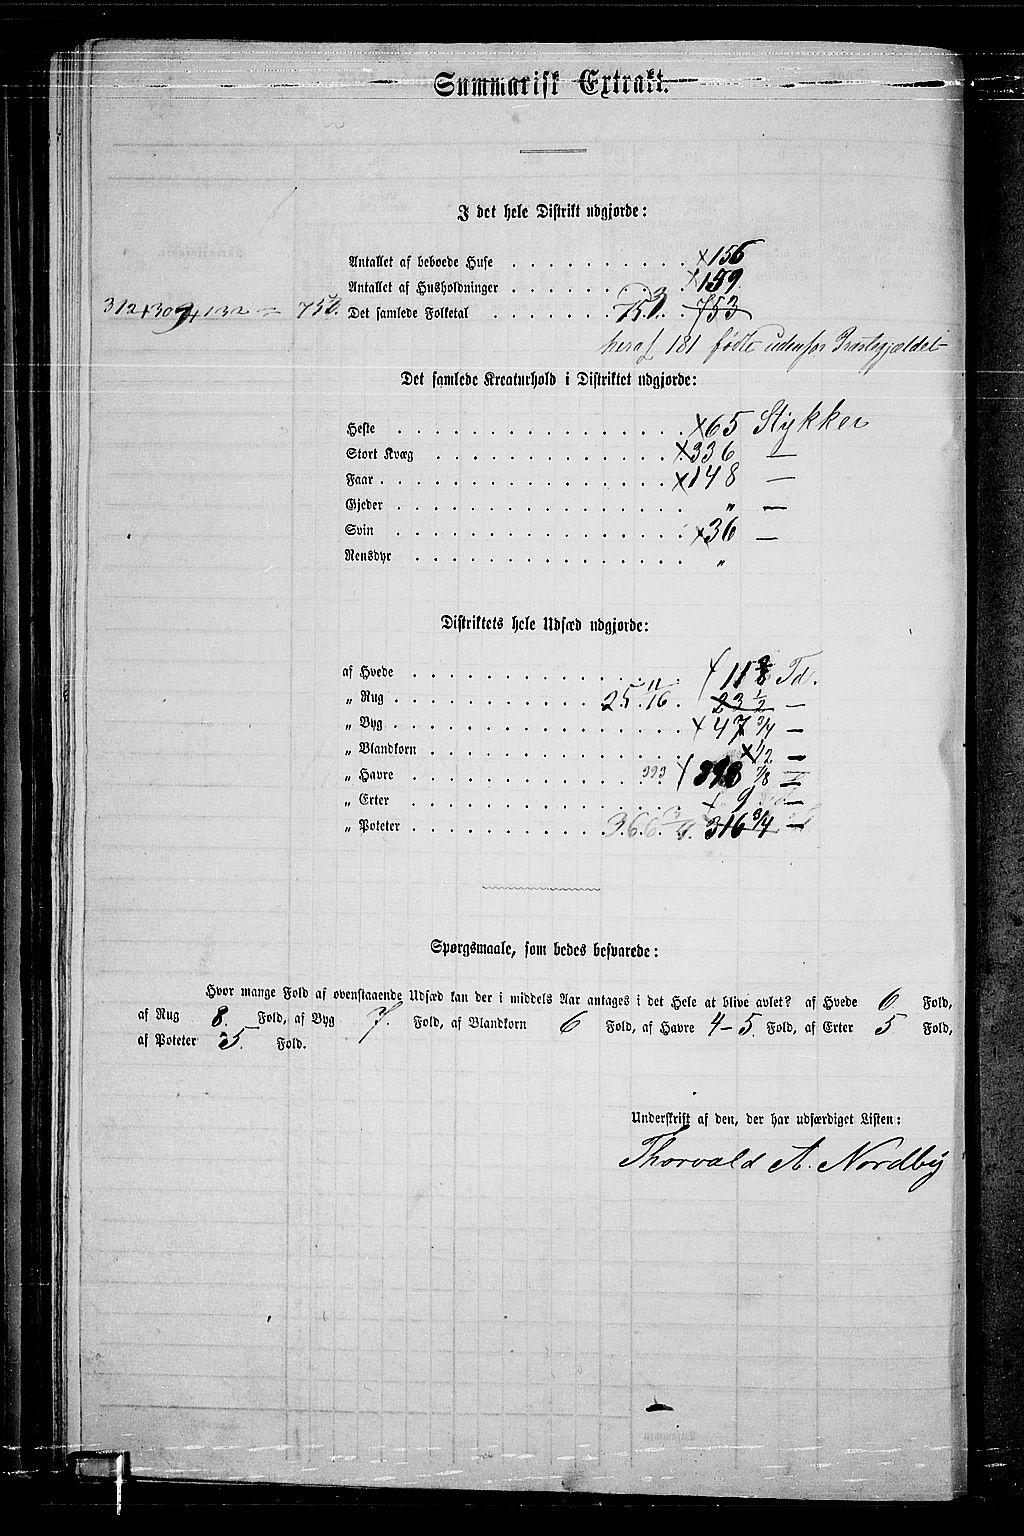 Summarisk Extrakt.
I det hele Distrikt udgjorde:
Antallet af beboede Huse . . . . . . . . ×156
Antallet af Husholdninger . . . . . . . . ×159
Det samlede Folketal . . . . . . 753
heraf 181 fødte udenfor Præstegjældet
Det samlede Kreaturhold i Districtet udgjorde:
Heste . . . . . . . . . . . . . . . ×65 Stykker
Stort Kvæg . . . . . . . . . . . . . ×336 —
Faar . . . . . . . . . . . . . . . ×148 —
Gjeder . . . . . . . . . . . . . . . „ —
Svin . . . . . . . . . . . . . . . ×36 —
Rensdyr . . . . . . . . . . . . . . . „
Distriktets hele Udsæd udgjorde:
af Hvede . . . . . . . . . . . . . . Td.
„ Rug . . . . . . . . . . 25 11/16 23 1/2 —
„ Byg . . . . . . . . . . . . . . . ×47 3/4 —
„ Blandkorn . . . . . . . . . . . . . ×1/2 —
„ Havre . . . . . . . . . . . . 393 7/8 —
„ Erter . . . . . . . . . . . . . . × 9 —
„ Poteter . . . . . . . . . . 366 3/4 316 3/4 —
Spørgsmaale, som bedes besvarede:
Hvor mange Fold af ovenstaaende Udsæd kan der i middels Aar antages i det Hele at blive avlet? af Hvede 6 Fold,
af Rug 8. Fold, af Byg 7. Fold, af Blandkorn 6 Fold, af Havre 4-5. Fold, af Erter 5 Fold,
af Poteter 5. Fold.
Underskrift af den, der har udfærdiget Listen:
Thorvald A. Nordby